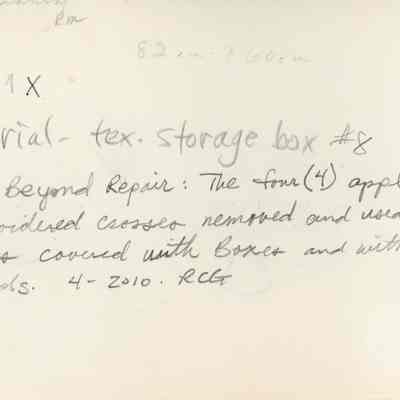 Rm
82 cm. x 60 cm
1 X
rial - tex. storage box #8
Beyond Repair: The four (4) appl
oidered crosses removed and used
s covered with Boxes and with
ds. 4-2010. RCG